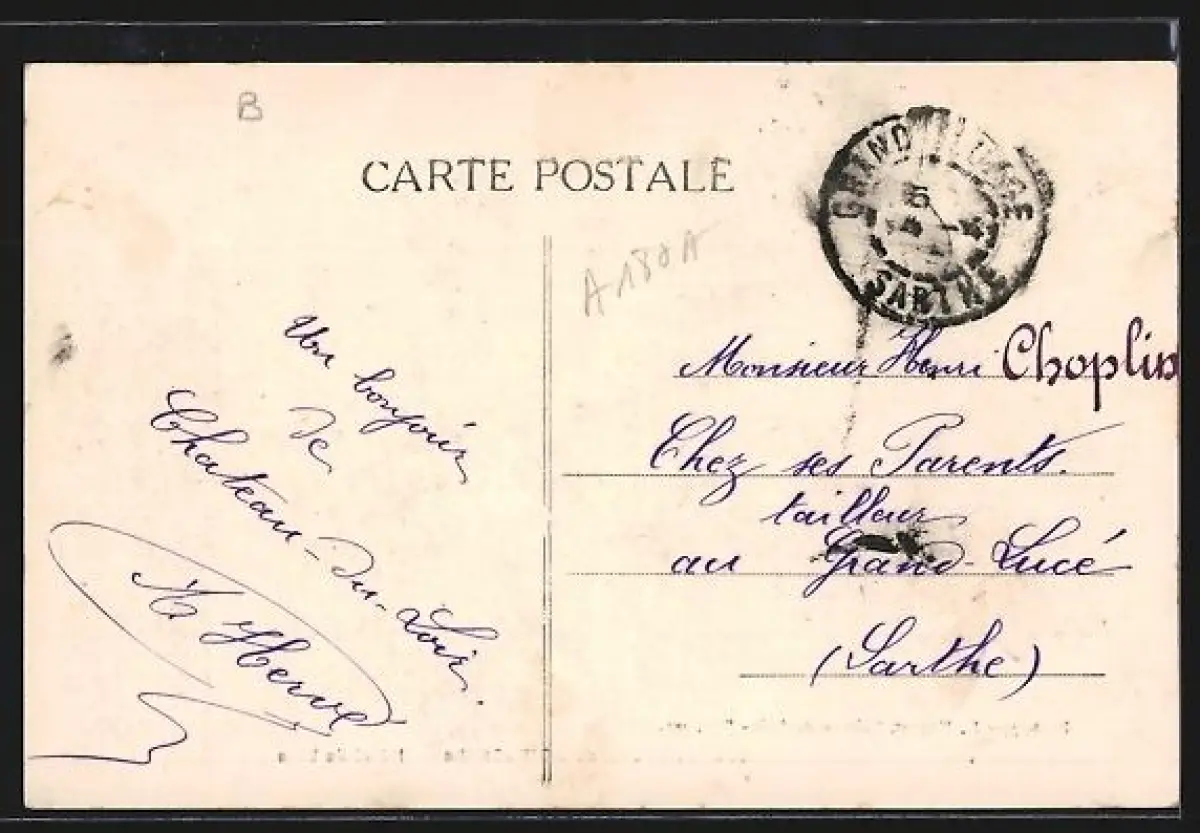 B
CARTE POSTALE
GRAND
SARTHE
A180A
Un bonjour
de
Chateau-du-Loir.
M Hervé
Monsieur Henri Choplin
Chez ses Parents.
tailleur
au Grand-Lucé
(Sarthe)